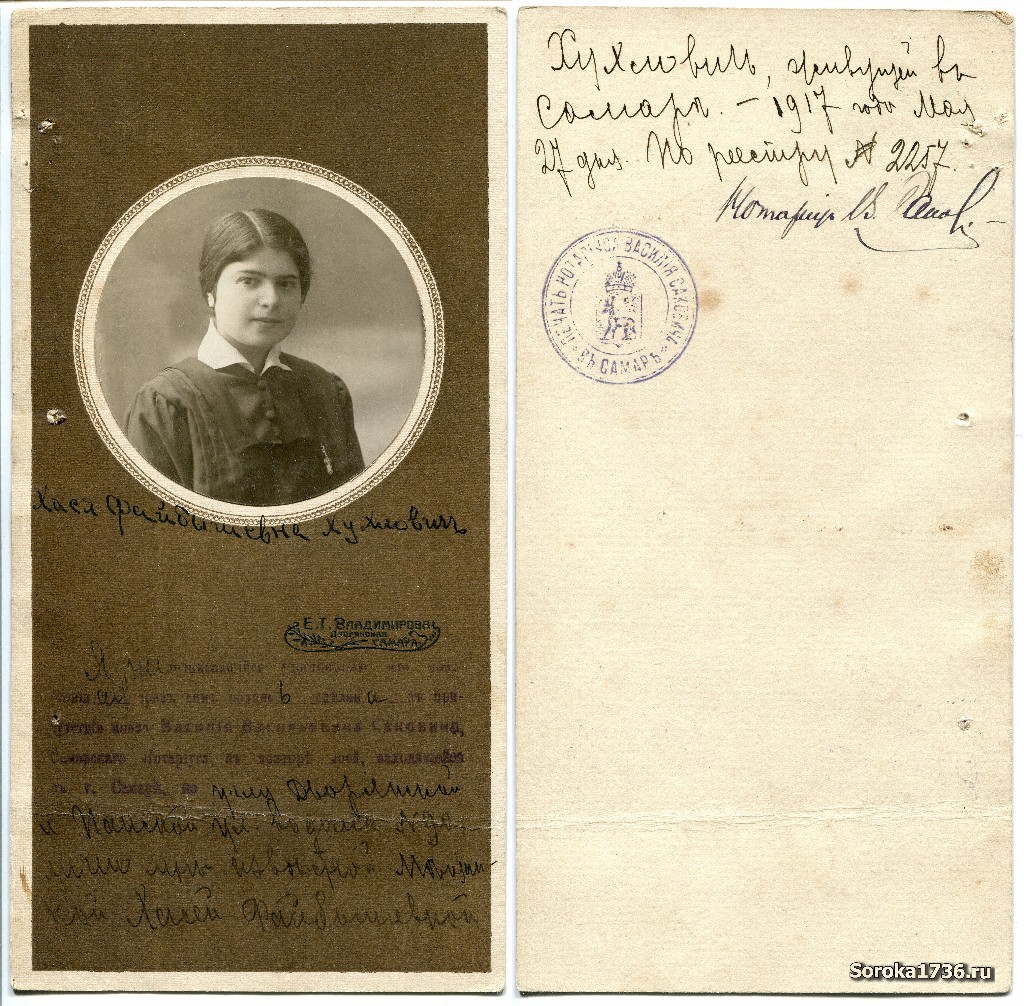 Хася Файбышевна Хухловичъ
Е. Г. Владимирова
Дворянская
САМАРА
Я
въ при-
Василія Васильевича Саковича,
Самарскаго Нотаріуса, въ конторѣ моей, находящейся
въ г. Самарѣ, по углу Дворянской
и Панской ул. въ домѣ
мнѣ извѣстной
Хасей Файбышевной
Хухловичъ, живущей въ
Самарѣ. — 1917 года Мая
27 дня. По реестру № 2257.
Нотаріусъ В.
ПЕЧАТЬ НОТАРІУСА ВАСИЛІЯ САКОВИЧА
ВЪ САМАРѢ
Soroka1736.ru